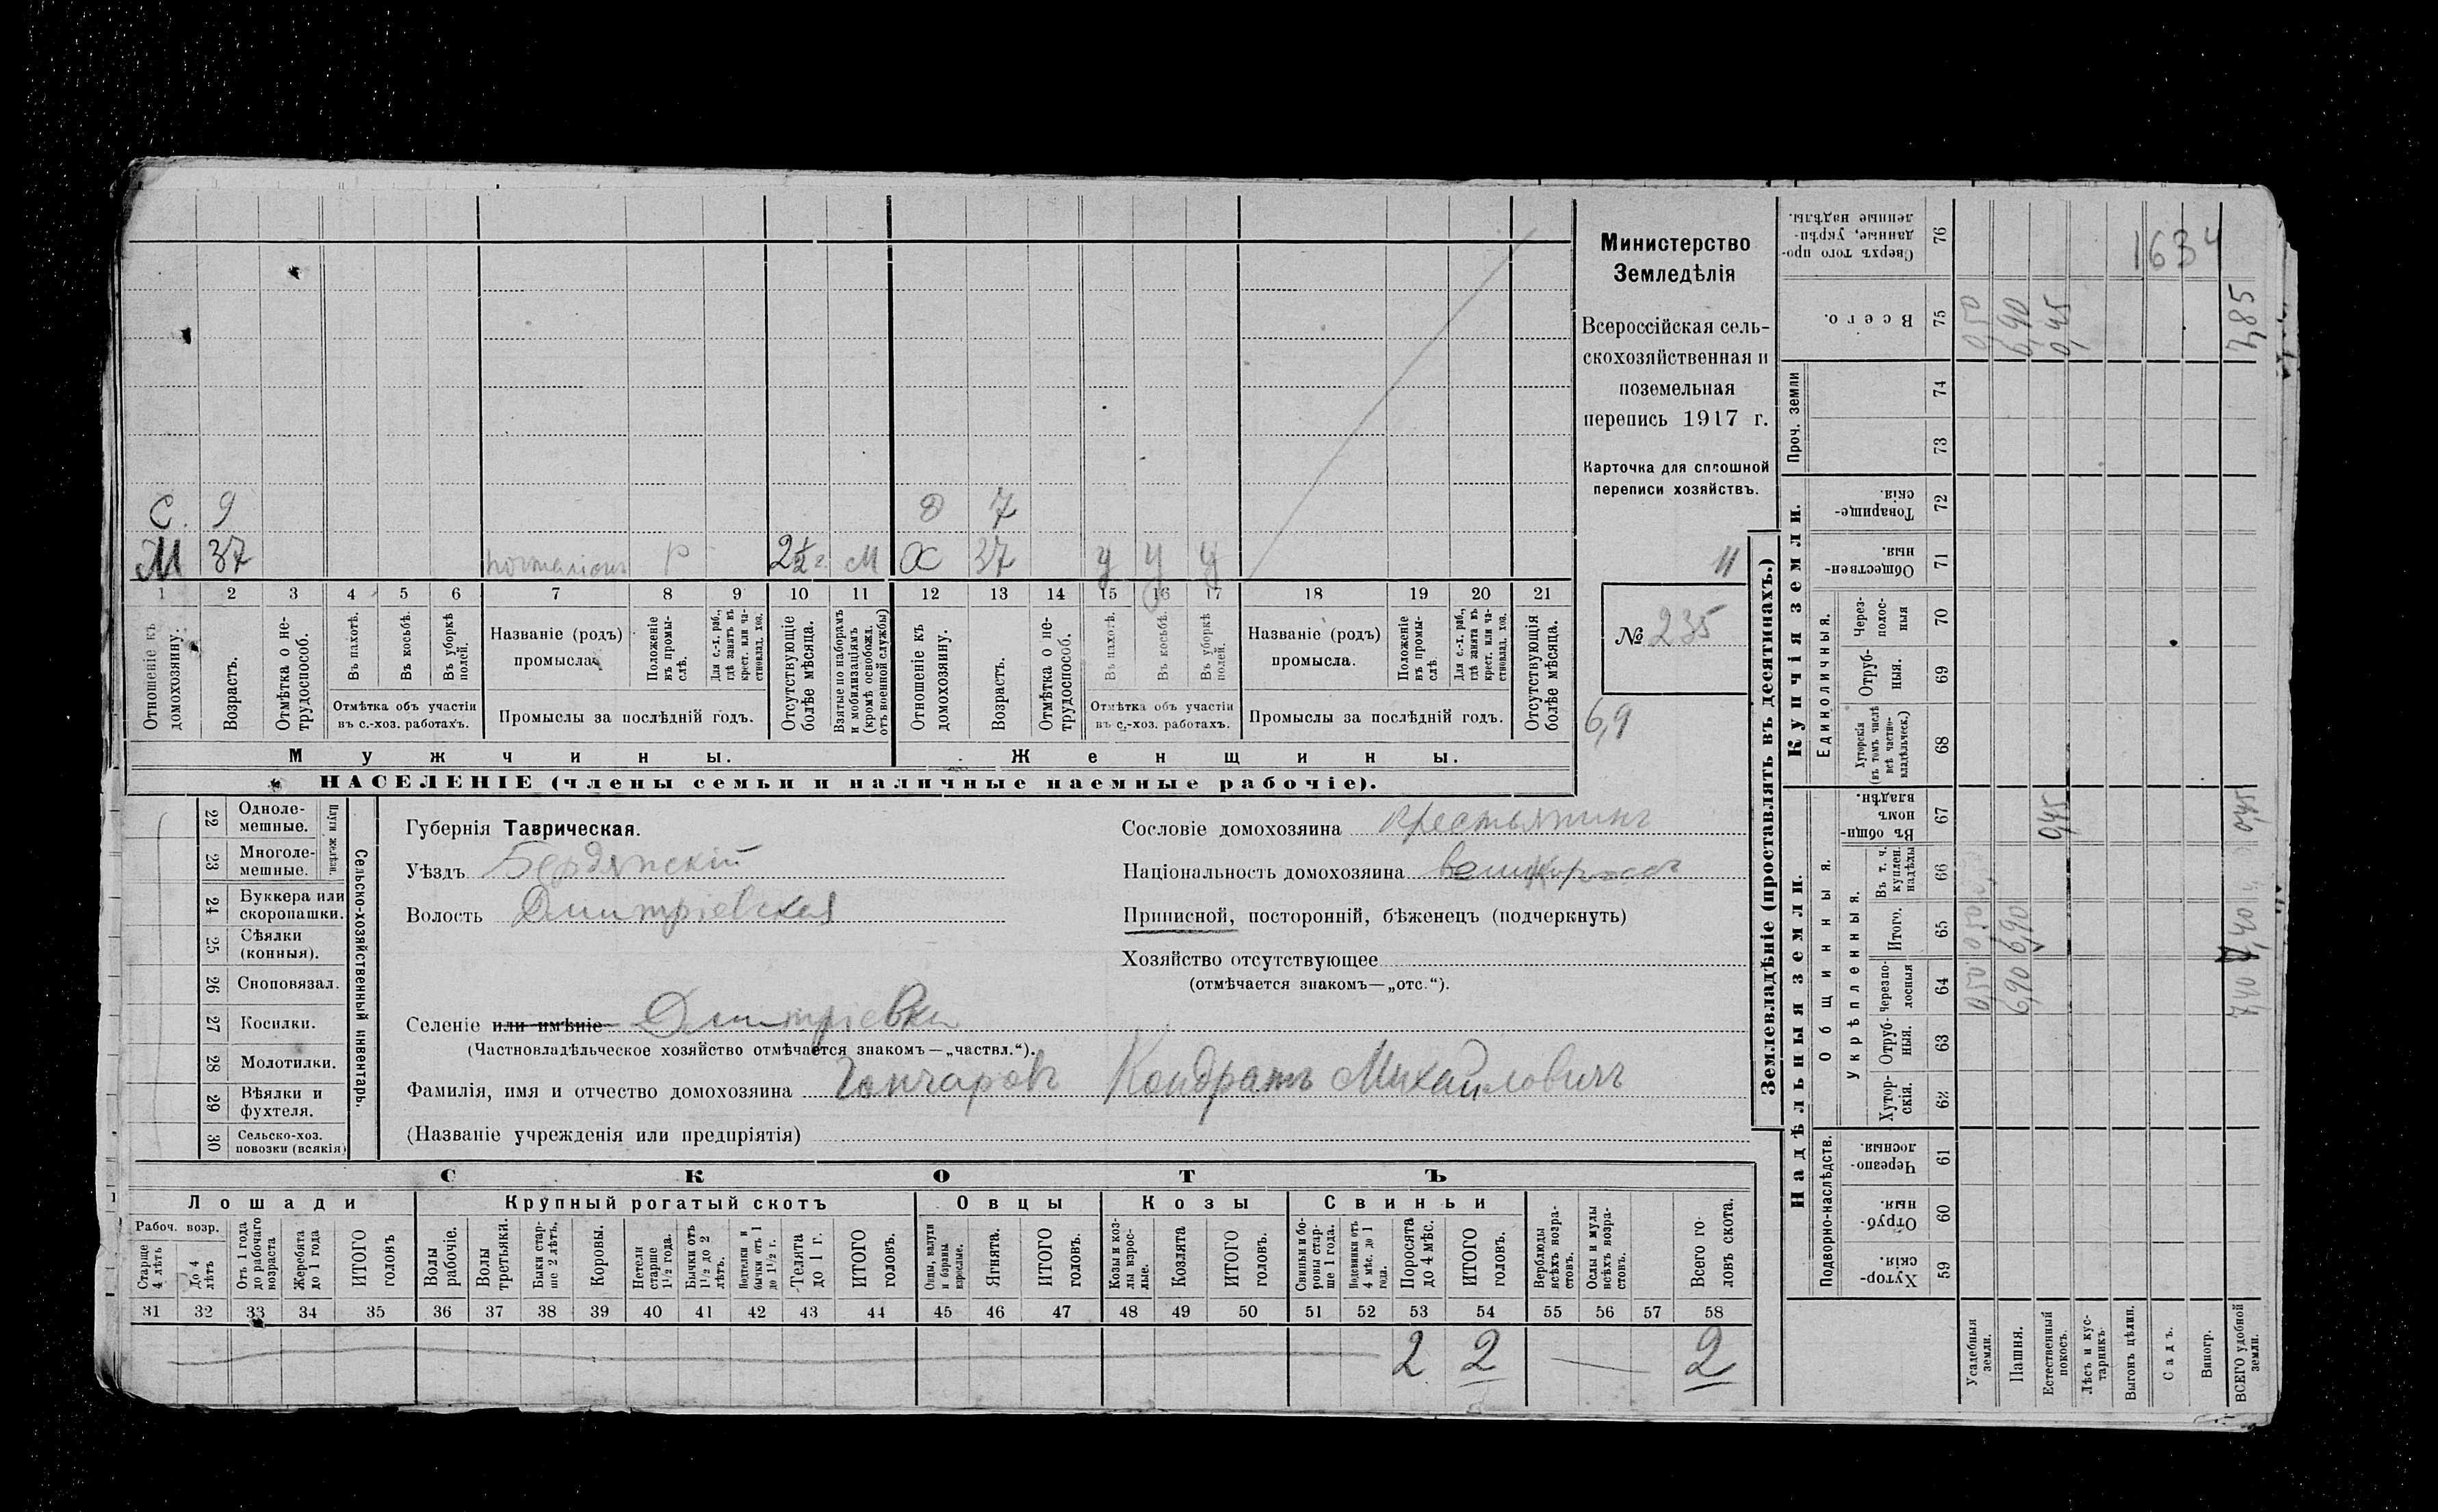 С. 9 д 7
М 37 р 2½ г. М Ж 37 у у у
1 2 3 4 5 6 7 8 9 10 11 12 13 14 15 16 17 18 19 20 21
Отношеніе къ домохозяину.
Возрастъ.
Отмѣтка о не-трудоспособ.
Въ пахотѣ.
Въ косьбѣ.
Въ уборкѣ полей.
Отмѣтка объ участіи въ с.-хоз. работахъ.
Названіе (родъ) промысла.
Положеніе въ промы-слѣ.
Для с.-х. раб., гдѣ занятъ въ крест. или ча-стновлад. хоз.
Промыслы за послѣдній годъ.
Отсутствующіе болѣе мѣсяца.
Взятые по наборамъ и мобилизаціямъ (кромѣ освобожд. отъ военной службы)
Отношеніе къ домохозяину.
Возрастъ.
Отмѣтка о не-трудоспособ.
Въ пахотѣ.
Въ косьбѣ.
Въ уборкѣ полей.
Отмѣтка объ участіи въ с.-хоз. работахъ.
Названіе (родъ) промысла.
Положеніе въ промы-слѣ.
Для с.-х. раб., гдѣ занята въ крест. или ча-стновлад. хоз.
Промыслы за послѣдній годъ.
Отсутствующія болѣе мѣсяца.
Мужчины.
Женщины.
НАСЕЛЕНІЕ (члены семьи и наличные наемные рабочіе).
Министерство
Земледѣлія
Всероссійская сель-
скохозяйственная и
поземельная
перепись 1917 г.
Карточка для сплошной
переписи хозяйствъ.
11
№ 235
6,9
Сельско-хозяйственный инвентарь.
Плуги желѣзн.
22 Одноле-мешные.
23 Многоле-мешные.
24 Буккера или скоропашки.
25 Сѣялки (конныя).
26 Сноповязал.
27 Косилки.
28 Молотилки.
29 Вѣялки и фухтеля.
30 Сельско-хоз. повозки (всякія)
Губернія Таврическая.
Уѣздъ Бердянскій
Волость Дмитріевская
Селеніе или имѣніе Дмитріевка
(Частновладѣльческое хозяйство отмѣчается знакомъ—„частвл.“).
Фамилія, имя и отчество домохозяина Гончаровъ Кондратъ Михайловичъ
(Названіе учрежденія или предпріятія)
Сословіе домохозяина крестьянинъ
Національность домохозяина великороссъ
Приписной, посторонній, бѣженецъ (подчеркнуть)
Хозяйство отсутствующее
(отмѣчается знакомъ—„отс.“).
СКОТЪ
Лошади
Крупный рогатый скотъ
Овцы
Козы
Свиньи
Рабоч. возр.
Старше 4 лѣтъ
До 4 лѣтъ
Отъ 1 года до рабочаго возраста
Жеребята до 1 года
ИТОГО головъ
Волы рабочіе.
Волы третьяки.
Быки стар-ше 2 лѣтъ.
Коровы.
Нетели старше 1½ года.
Бычки отъ 1½ до 2 лѣтъ.
Нетелки и бычки отъ 1 до 1½ г.
Телята до 1 г.
ИТОГО головъ.
Овцы, валухи и бараны взрослые.
Ягнята.
ИТОГО головъ.
Козы и коз-лы взрос-лые.
Козлята
ИТОГО головъ.
Свиньи и бо-ровы стар-ше 1 года.
Подсвинки отъ 4 мѣс. до 1 года.
Поросята до 4 мѣс.
ИТОГО головъ.
Верблюды всѣхъ возра-стовъ.
Ослы и мулы всѣхъ возра-стовъ.
Всего го-ловъ скота.
31 32 33 34 35 36 37 38 39 40 41 42 43 44 45 46 47 48 49 50 51 52 53 54 55 56 57 58
2 2 — 2
Землевладѣніе (проставлять въ десятинахъ.)
Надѣльныя земли.
Купчія земли.
Проч. земли
Подворно-наслѣдств.
Общинныя.
Укрѣпленныя.
Единоличныя.
Сверхъ того про-данные, укрѣп-ленные надѣлы. 76
1634
Всего. 75 0,50 6,90 0,45 7,85
74
73
Товарище-скія. 72
Обществен-ныя. 71
Через-полос-ныя 70
Отруб-ныя. 69
Хуторскія (въ томъ числѣ всѣ частно-владѣльческ.) 68
Въ общи-номъ владѣн. 67 0,45 0,45
Въ т. ч. куплен. надѣлы 66
Итого. 65 0,50 6,90 7,40
Черезпо-лосныя 64 0,50 6,90 7,40
Отруб-ныя. 63
Хутор-скія. 62
Черезпо-лосныя. 61
Отруб-ныя. 60
Хутор-скія. 59
Усадебныя земли.
Пашня.
Естественный покосъ.
Лѣсъ и кус-тарникъ
Выгонъ цѣлин.
Садъ.
Виногр.
ВСЕГО удобной земли.